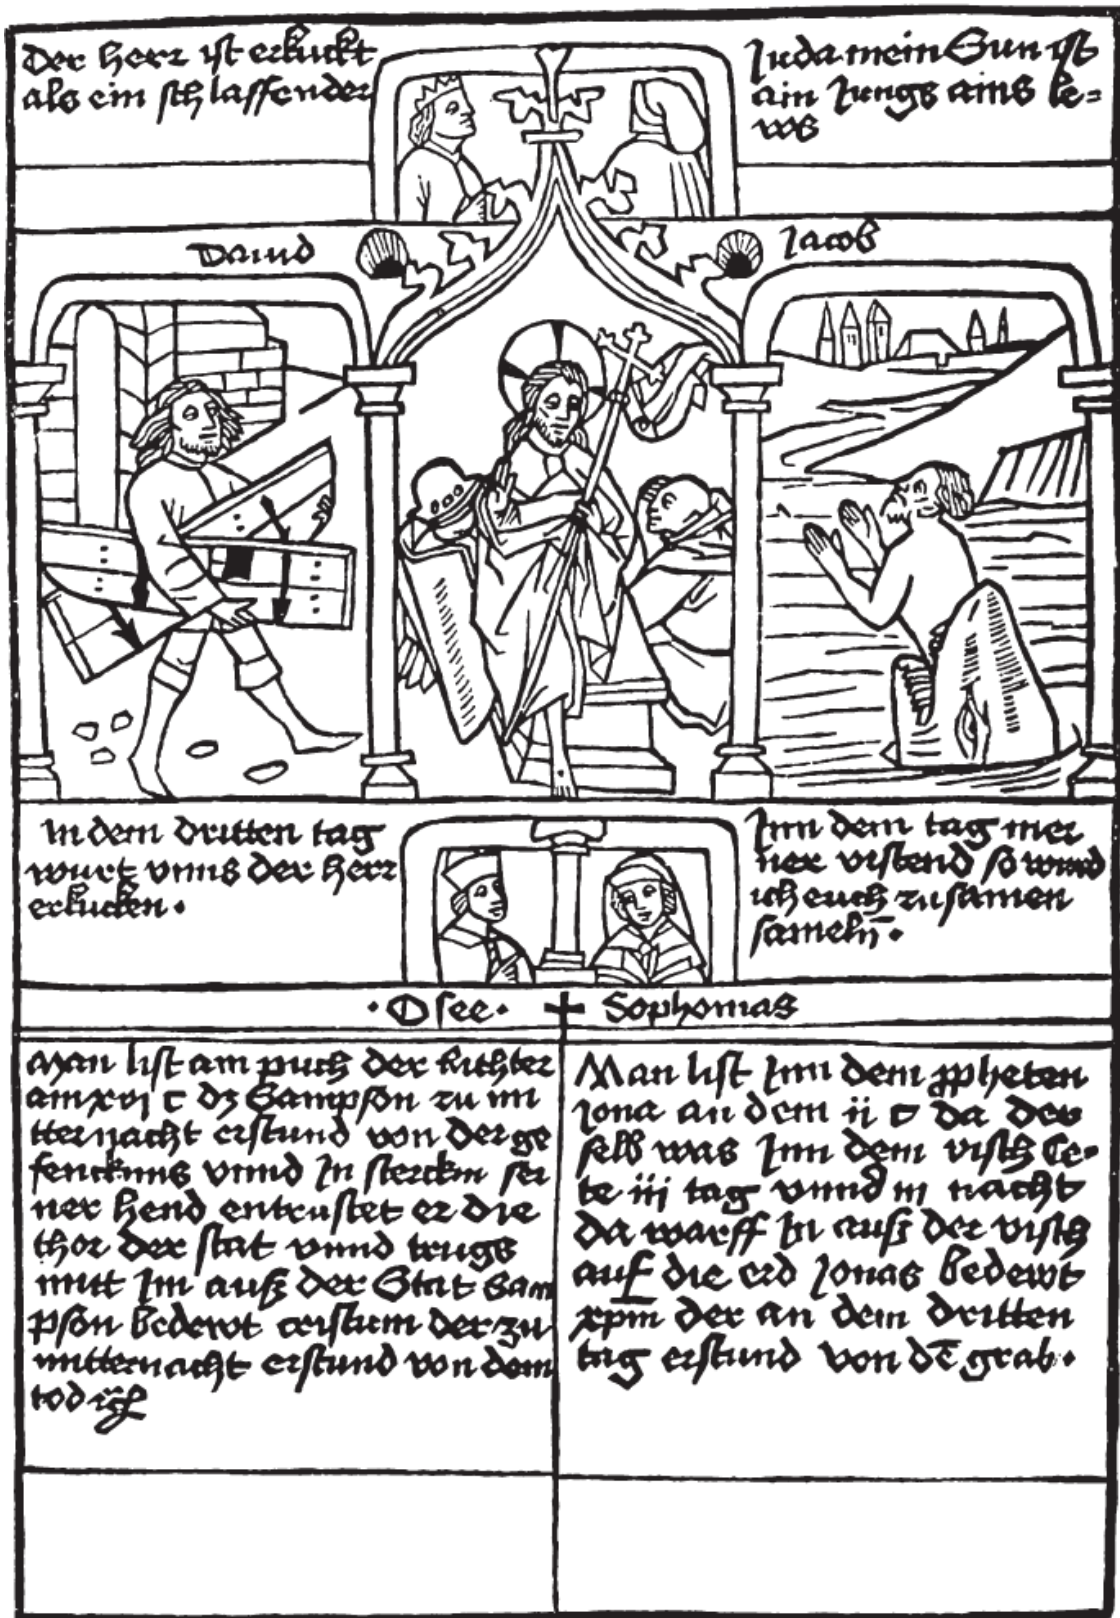 Der herr ist erkuckt
als ein schlaffender
Juda mein Sun ist
ain Jungs ains le=
ws
Dauid
Jacob
In dem dritten tag
wurt vnns der herr
erkucken.
Inn dem tag mei
ner vrstend so wurd
ich euch zu samen
sameln̄.
.Osee.
Sophonias
Man list am puch der Richter
am xvj c dz Sampson zu mi
tternacht erstund von der ge
fencknus vnnd In sterckin sei
ner hend entrustet er die
thor der stat vnnd trugs
mitt Im auß der Stat Sam
pson bedewt cristum der zu
mitternacht erstund von dem
tod
Man list Inn dem ppheten
Jona an dem ii c da der
selb was Inn dem visch Ce-
te iii tag vnnd iii nacht
da warff In auß der visch
auf die erd Jonas bedewt
xpm̄ der an dem dritten
tag erstund von dē grab.